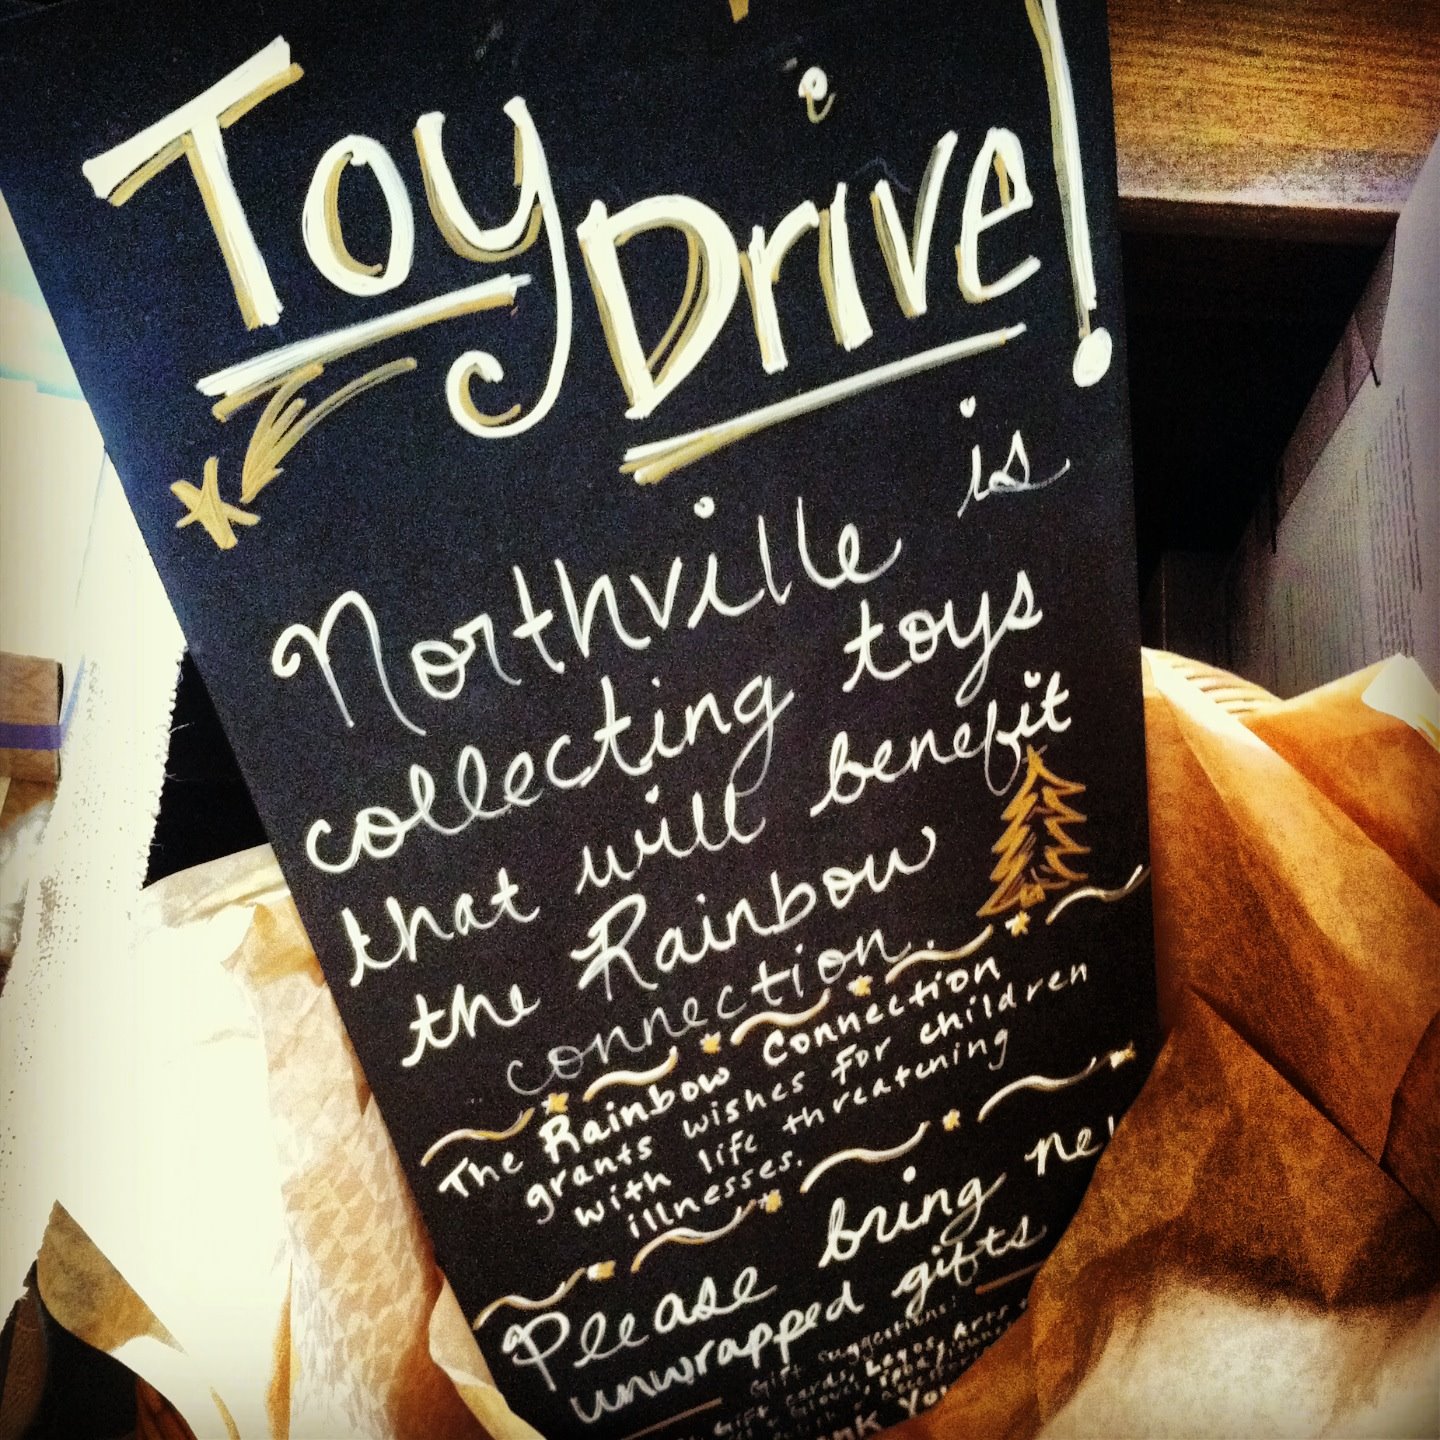 Toy Drive!
Northville is
collecting toys
that will benefit
the Rainbow
connection.
The Rainbow Connection
grants wishes for children
with life threatening
illnesses.
Please bring
unwrapped gifts
Gift suggestions:
Gift cards, Legos, Arts